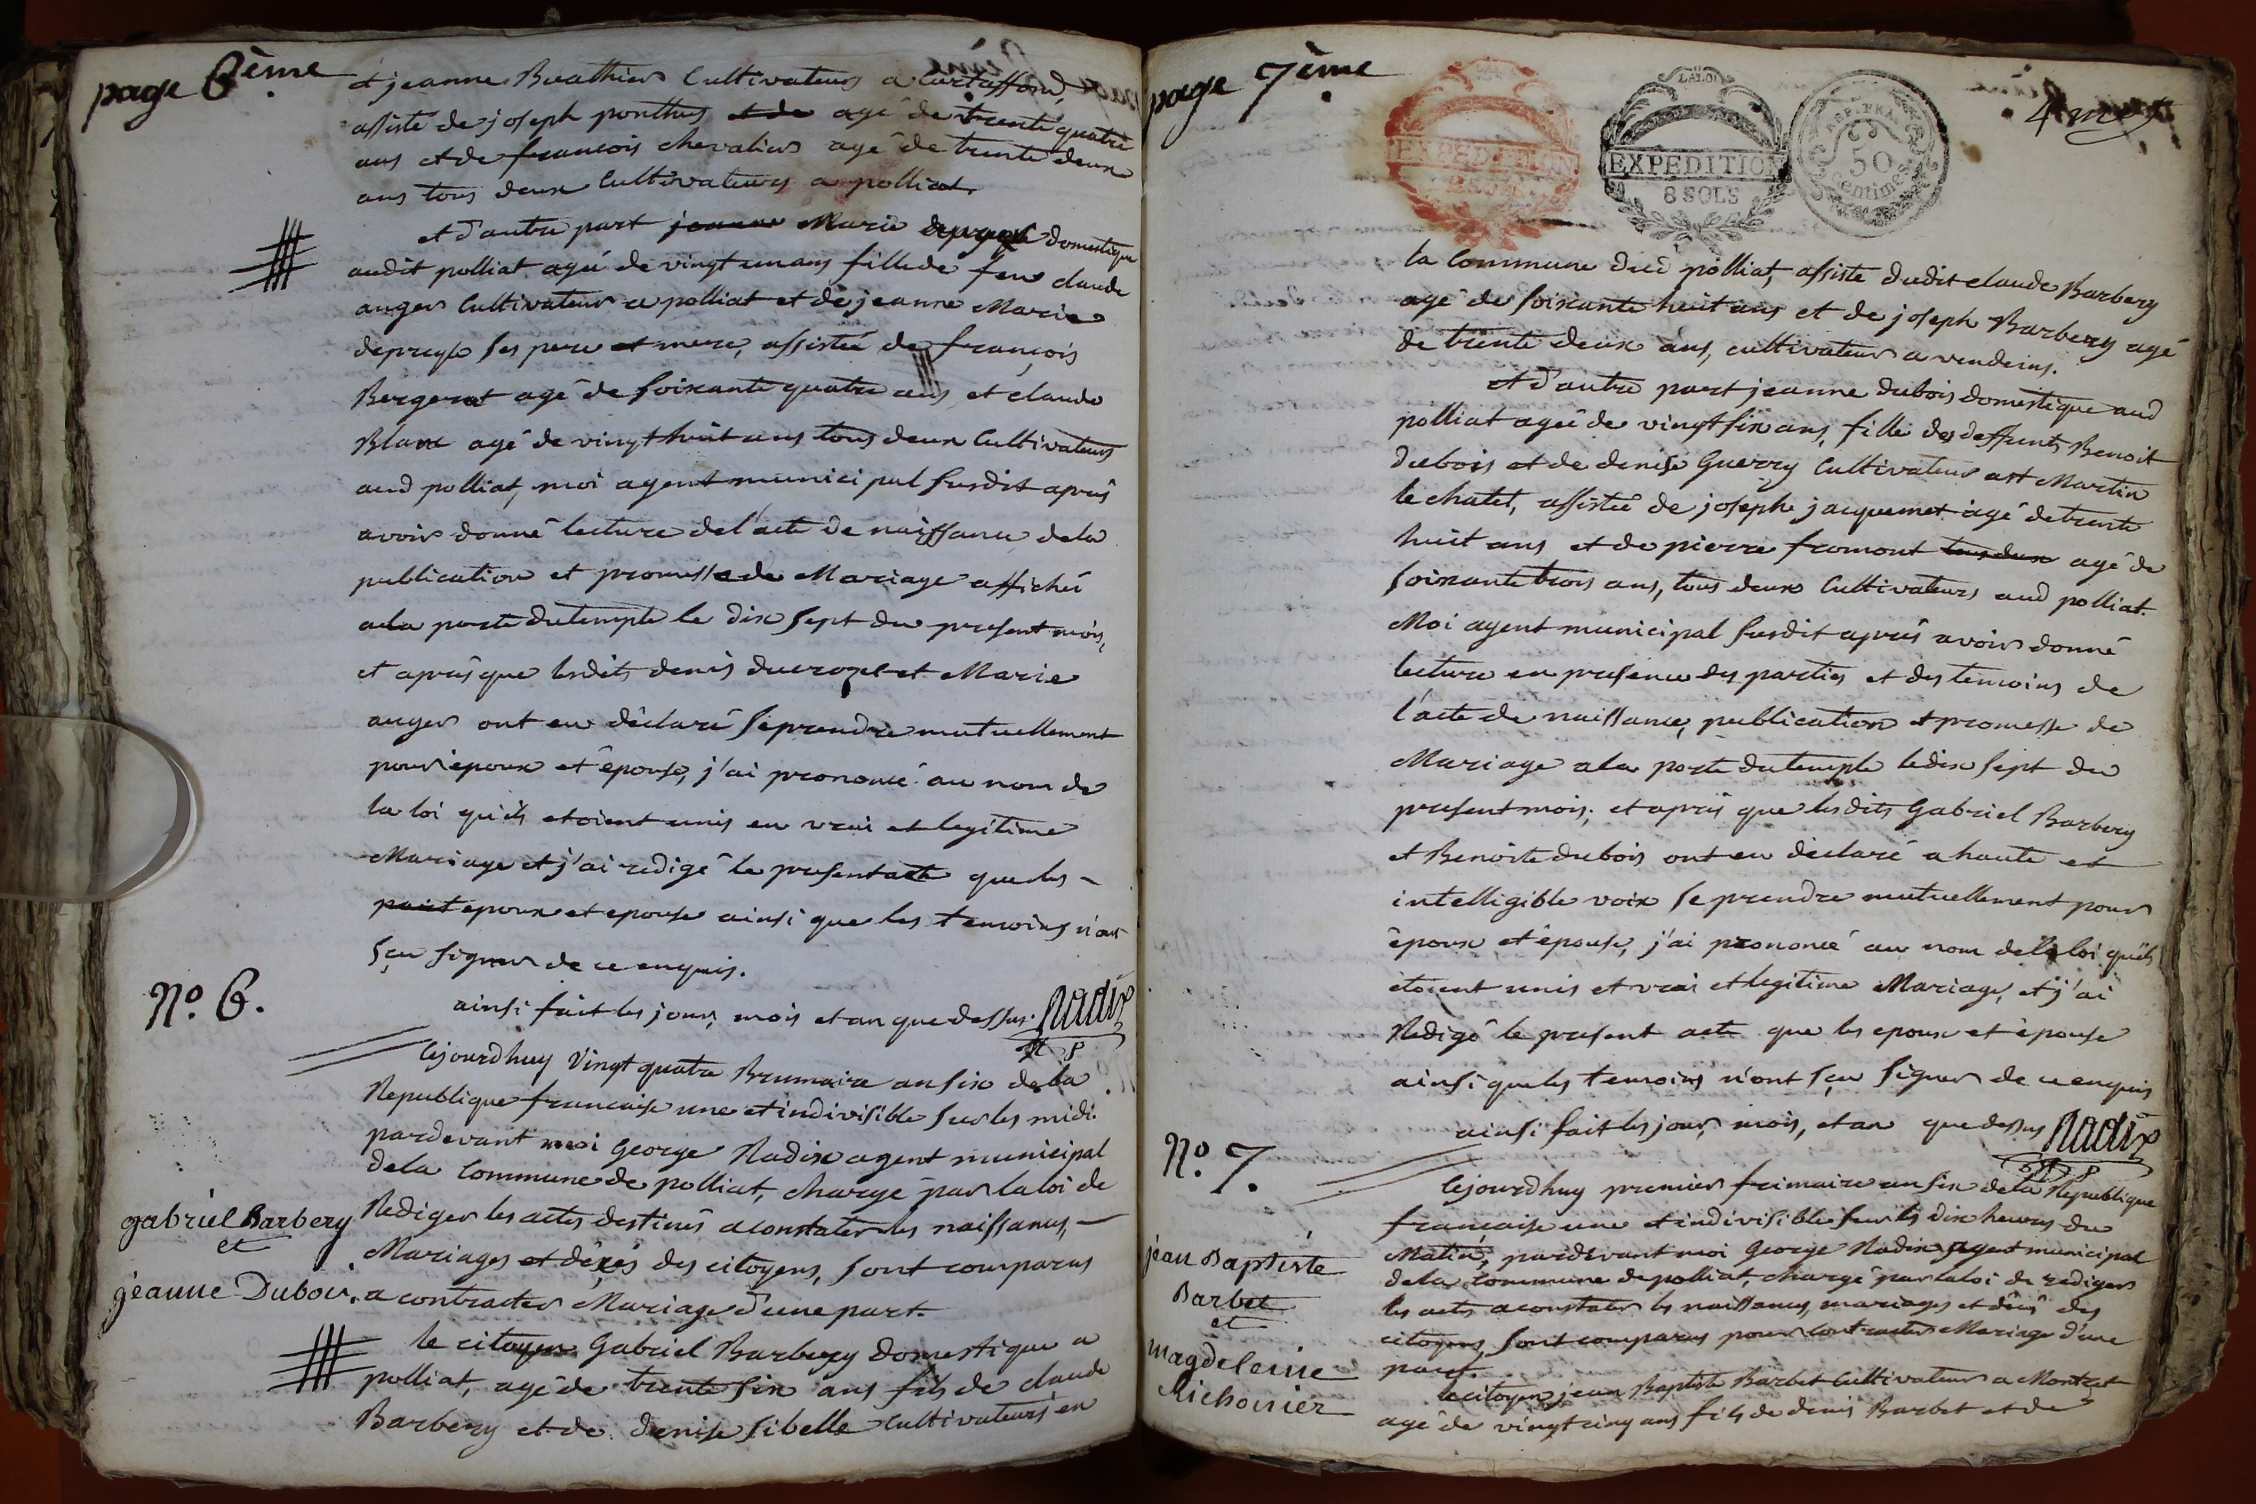 page 6ème
et jeanne Buathier Cultivateurs a Curtaffond,
assisté de joseph ponthus et de agé de trente quatre
ans et de francois chevalier agé de trente deux
ans tous deux Cultivateurs a polliat.
et d'autre part jeanne Marie depreyle domestique
audit polliat ageé de vingt un ans fille de feu claude
auger Cultivateur a polliat et de jeanne Marie
depreyle ses pere et mere, assistée de françois
Bergerat agé de soixante quatre ans et claude
Blanc agé de vingt huit ans tous deux Cultivateurs
aud polliat, moi agent municipal susdit aprés
avoir donné lecture de l'acte de naissance de la
publication et promesse de Mariage affiché
a la porte du temple le dix sept du present mois,
et aprés que lesdits denis ducrozet et Marie
auger ont eu déclaré se prendre mutuellement
pour époux et épouse, j'ai prononcé au nom de
la loi qu'ils etoient unis en vrai et legitime
Mariage et j'ai redigé le present acte que les
part epoux et epouse ainsi que les temoins n'ont
sçu signer de ce enquis.
ainsi fait les jour, mois et an que dessus. Nadix
No. 6.
Cejourdhuy Vingt quatre Brumaire an six de la
Republique francaise une et indivisible sur les midi
pardevant moi George Nadix agent municipal
de la Commune de polliat, chargé par la loi de
Rediger les actes destinés a constater les naissances,
Mariages et décés des citoyens, sont comparus
a contracter Mariage d'une part.
gabriel Barbery
et
jeanne Dubois.
le citoyen Gabriel Barbery domestique a
polliat, agé de trente six ans fils de claude
Barbery et de denise sibelle cultivateurs en
page 7ème
LA LOI
EXPEDITION
8 SOLS
EXPEDITION
8 SOLS
REP. FRA.
50
centimes
la Commune dud polliat, assisté dudit claude Barbery
agé de soixante huit ans et de joseph Barbery agé
de trente deux ans, cultivateur a vendeins.
et d'autre part jeanne dubois domestique aud
polliat ageé de vingt six ans, fille des deffunts Benoit
dubois et de denise Guerry Cultivateurs a st Martin
le chatel, assistée de joseph jacquemet agé de trente
huit ans et de pierre fromont tous deux agé de
soixante trois ans, tous deux Cultivateurs aud polliat.
Moi agent municipal susdit aprés avoir donné
lecture en presence des parties et des temoins de
l'acte de naissance, publication et promesse de
Mariage a la porte du temple le dix sept du
present mois; et aprés que lesdits Gabriel Barbery
et Benoite dubois ont eu déclaré a haute et
intelligible voix se prendre mutuellement pour
époux et épouse, j'ai prononcé au nom de la loi quils
étoient unis et vrai et legitime Mariage, et j'ai
Redigé le present acte que les epoux et épouse
ainsi que les temoins n'ont sçu signer de ce enquis
ainsi fait les jour, mois, et an que dessus Nadix
No. 7.
Cejourdhuy premier frimaire an six de la Republique
francaise une et indivisible sur les dix heures du
Matin, pardevant moi George Nadix agent municipal
de la Commune de polliat, chargé par la loi de rediger
les actes a constater les naissances, mariages et décés des
citoyens, sont comparus pour contracter Mariage d'une
part.
jean Baptiste
Barbet
et
Magdeleine
Richonier
le citoyen jean Baptiste Barbet Cultivateur a Montcet
agé de vingt cinq ans fils de denis Barbet et de